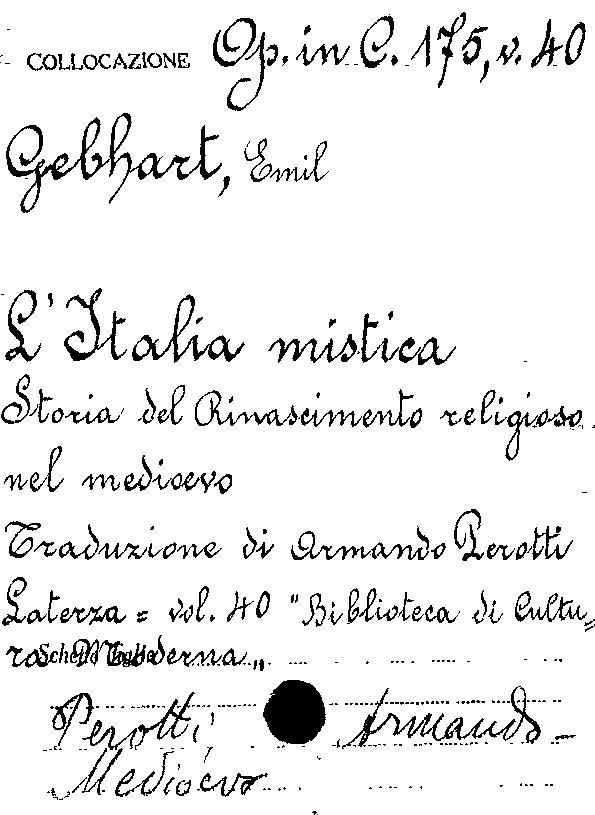 COLLOCAZIONE Op. in C. 175, v. 40
Gebhart, Emil
L'Italia mistica
Storia del Rinascimento religioso
nel medioevo
Traduzione di Armando Perotti
Laterza = vol. 40 "Biblioteca di Cultu=
ra Moderna„
Perotti, Armando -
Medioevo